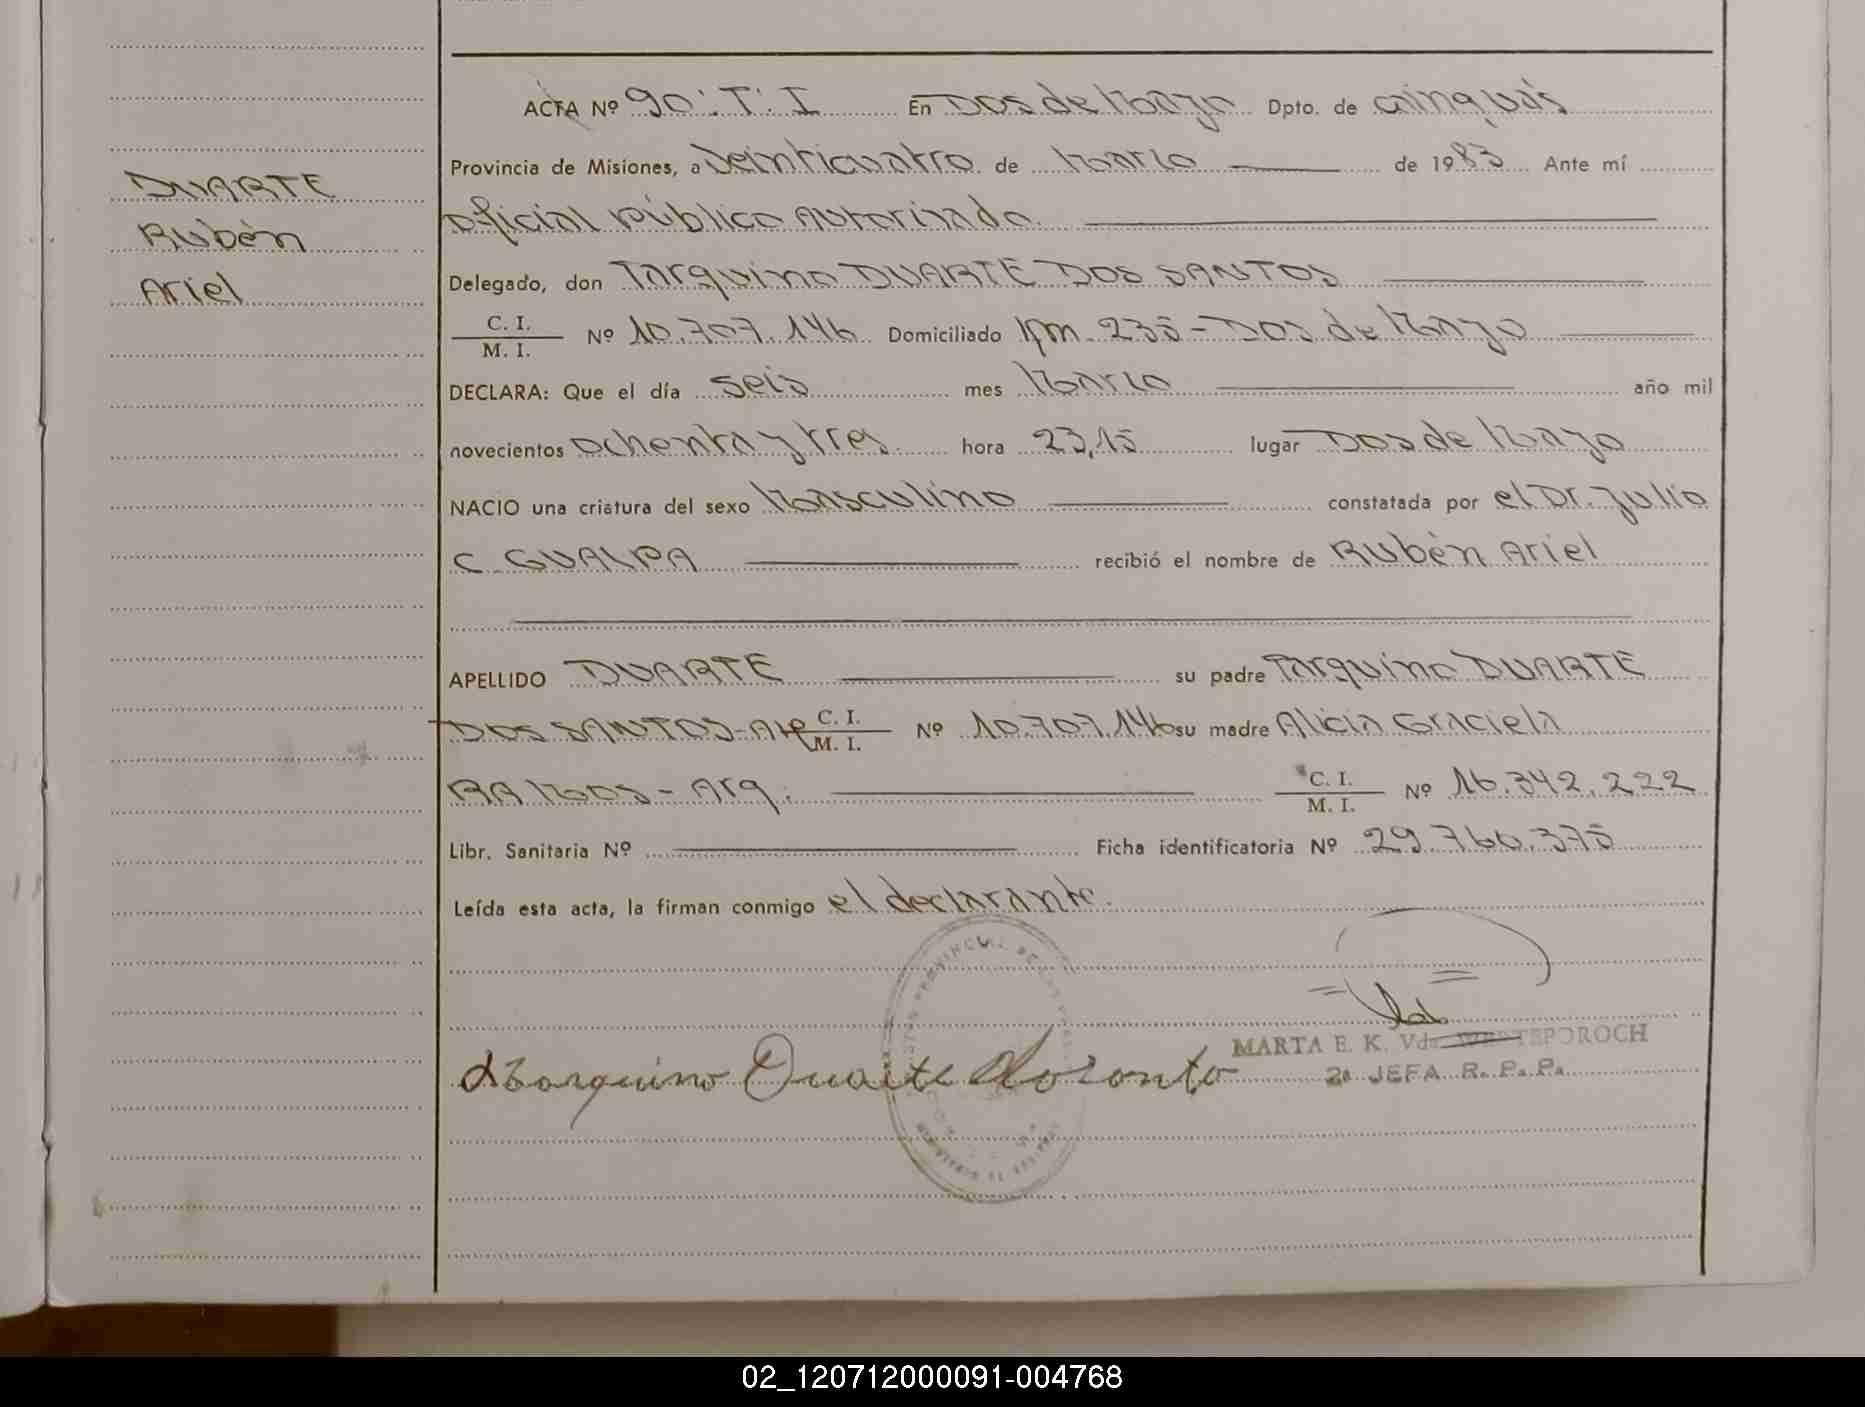 DUARTE
Rubén
Ariel
ACTA Nº 90: T: I En Dos de Mayo Dpto. de Cainguás
Provincia de Misiones, a Veinticuatro de Marzo de 1983 Ante mí
Oficial Público Autorizado.
Delegado, don Tarquino DUARTE DOS SANTOS
C. I.
M. I. Nº 10.707.146 Domiciliado Km. 235 - Dos de Mayo
DECLARA: Que el día seis mes Marzo año mil
novecientos ochenta y tres. hora 23,15 lugar Dos de Mayo
NACIO una criatura del sexo Masculino constatada por el Dr. Julio
C. GUALPA recibió el nombre de Rubén Ariel
APELLIDO DUARTE su padre Tarquino DUARTE
DOS SANTOS - Arg C. I.
M. I. Nº 10.707.146 su madre Alicia Graciela
RAMOS - Arg. C. I.
M. I. Nº 16.342.222
Libr. Sanitaria Nº Ficha identificatoria Nº 29.760.375
Leída esta acta, la firman conmigo el declarante.
MARTA E. K. Vda.
2ª JEFA R. P. P.
02_120712000091-004768